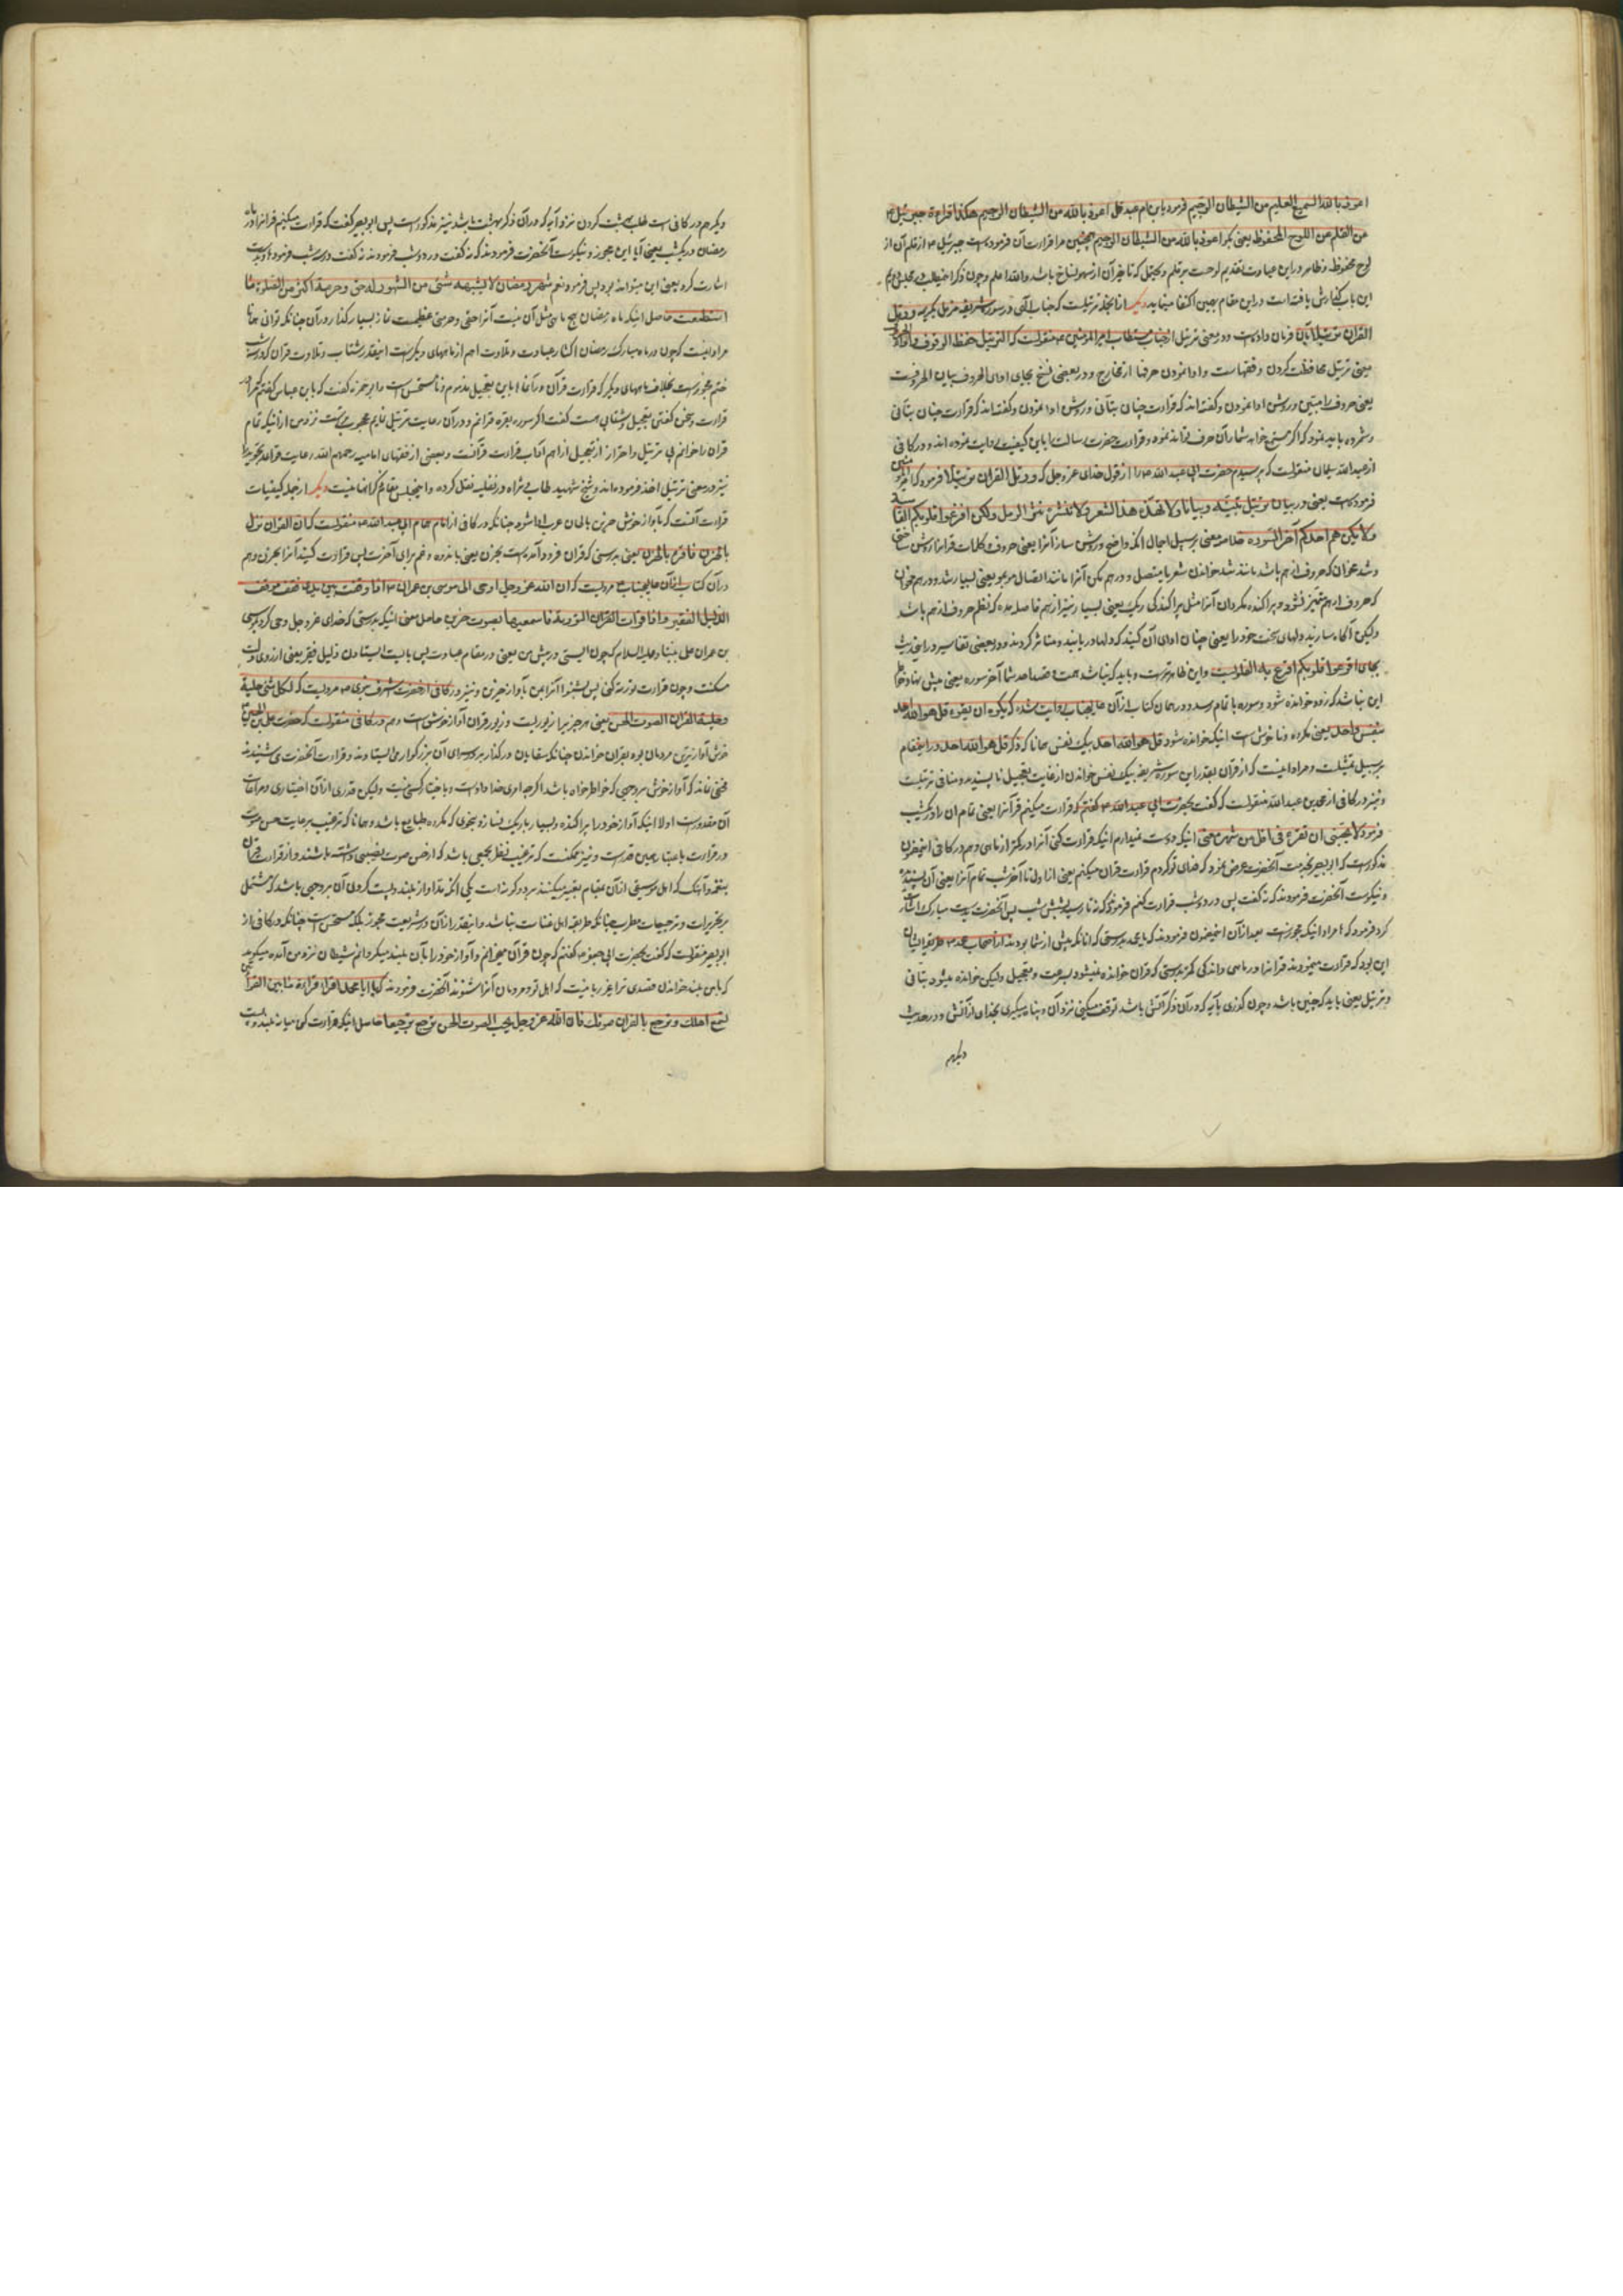 اعوذ بالله السمیع العلیم من الشیطان الرجیم فرمود یابن ام عبد قل اعوذ بالله من الشیطان الرجیم هکذا اقراءنیه جبرئیل
من القلم من اللوح المحفوظ یعنی بگو اعوذ بالله من الشیطان الرجیم همچنین مرا قرارت آن فرموده است جبرئیل ع از قلم آن از
لوح محفوظ و ظاهر در این عبارت تقدیم لوحست بر قلم و محتمل که تاخیر آن از سهو نساخ باشد والله اعلم و چون ذکر
این باب گذارش یافته است در این مقام بهمین اکتفا مینماید دیگر از انجمله ترتیلست که جناب الهی در سوره شریفه مزمل بکریمه و رتل
القرآن ترتیلا بآن فرمان داده است و در معنی ترتیل از جناب مستطاب امیرالمؤمنین ع منقولست که الترتیل حفظ الوقوف و اداء الحروف
یعنی ترتیل محافظت کردن وقفهاست و ادا نمودن حرفها از مخارج و در بعضی نسخ بجای ادای الحروف بیان الحروفست
یعنی حروف را مبین و روشن ادا نمودن و گفته‌اند که قرارت چنان بتأنی و روشن ادا نمودن و گفته‌اند که قرارت چنان بتأنی
و شمرده باید نمود که اگر مستمع خواهد شمار آن حرف تواند نمود و قرارت حضرت رسالت را باین کیفیت روایت نموده‌اند و در کافی
از عبدالله سلیمان منقولست که پرسیدم حضرت ابی عبدالله ع را از قول خدای عزوجل که و رتل القرآن ترتیلا فرمود که امیرالمؤمنین
فرموده است یعنی در بیان ترتیل بینه تبیانا ولا تهذه هذ الشعر ولا تنثره نثر الرمل ولکن افزعوا قلوبکم القاسیه
ولا یکن هم احدکم آخر السوره خلاصه معنی بر سبیل اجمال آنکه واضح و روشن ساز آنرا یعنی حروف و کلمات قرآنرا روشن ساختی
که حروف از هم متمیز نشود و پراکنده مگردان آنرا مثل پراکندگی ریگ یعنی بسیار نیز از هم فاصله مده که نظم حروف از هم پاشد
ولیکن آگاه سازید دلهای سخت خود را یعنی چنان ادای آن کنید که دلها دریابند و متاثر گردند و در بعضی تفاسیر در این حدیث
این نباشد که زود خوانده شود و سوره باتمام رسد و در همان کتاب از آن عالیجناب روایت شده که یکره ان یقرء قل هو الله احد
بنفس واحد یعنی مکروه و ناخوش است اینکه خوانده شود قل هو الله احد بیک نفس همانا که ذکر قل هو الله احد در این مقام
بر سبیل تمثیلست و مراد اینست که از قرآن بقدر این سوره شریفه بیک نفس خواندن از غایت تعجیل ناپسندیده و منافی ترتیلست
و نیز در کافی از محمد بن عبدالله منقولست که گفت بحضرت ابی عبدالله ع گفتم که قرارت میکنم قرآنرا یعنی تمام آن را در یکشب
فرمود لا یعجبنی ان تقرء فی اقل من شهر یعنی اینکه دوست نمیدارم اینکه قرارت کنی آنرا در کمتر از ماهی و هم در کافی اینمضمون
مذکورست که ابوبصیر بخدمت آنحضرت عرض نمود که فدای تو گردم قرارت قرآن میکنم یعنی از اول تا آخر شب تمام آنرا
و نیکوست آنحضرت فرمودند که نه گفت پس در دو شب قرارت کنم فرمود که نه تا رسید بشش شب پس آنحضرت بدست مبارک اشارت
این بود که قرارت مینمودند قرآنرا در ماهی و اندکی کمتر بدرستی که قرآن خوانده نمیشود بسرعت و تعجیل ولیکن خوانده میشود بتأنی
و ترتیل یعنی باید که چنین باشد و چون گذری بآیه که در آن ذکر آتش باشد توقف میکنی نزد آن و پناه میگیری بخدای از آتش و در حدیث
دیگرهم
دیگر هم در کافی است طلب بهشت کردن نزد آیه که در آن ذکر بهشت باشد نیز مذکورست پس ابوبصیر گفت که قرارت میکنم قرآنرا در ماه
رمضان در یکشب یعنی آیا این مجوز و نیکوست آنحضرت فرمودند که نه گفت در دو شب فرمودند نه گفت در سه شب فرمود ها و بدست
اشارت کرد یعنی این میتواند بود پس فرمود نعم شهر رمضان لا یشبهه شئ من الشهور له حق و حرمة اکثر من الصلوة ما
استطعت حاصل اینکه ماه رمضان هیچ ماهی مثل آن نیست آنرا حقی و حرمتی عظیمست نماز بسیار گذار در آن چنانکه توانی همانا
مراد اینست که چون در ماه مبارک رمضان اکثار عبادت و تلاوت اهم از ماههای دیگرست اینقدر شتاب و تلاوت قرآن که در سه شب
ختم مجوزست بخلاف ماههای دیگر که قرارت قرآن در آنها باین تعجیل مذموم و نامستحسن است و ابوحمزه گفت که بابن عباس گفتم که مرا در
قرارت و سخن گفتن تعجیل و شتابی هست گفت اگر سوره بقره قرائم و در آن رعایت ترتیل نمایم محبوب‌تر است نزد من از اینکه تمام
قرآن را خوانم بی ترتیل و احتراز از تعجیل از اهم آداب قرارت قرآنست و بعضی از فقهای امامیه رحمهم الله رعایت قواعد تجوید را
نیز در معنی ترتیل اخذ فرموده‌اند و شیخ شهید طاب ثراه در نفلیه نقل کرده و اینمجلس مقام ذکر آنها نیست دیگر از جمله کیفیات
قرارت آنست که بآواز خوش حزین بالحان عرب ادا شود چنانکه در کافی از امام همام ابی عبدالله ع منقولست که ان القرآن نزل
بالحزن فاقرؤه بالحزن یعنی بدرستی که قرآن فرود آمده است بحزن یعنی باندوه و غم برای آخرت پس قرارت کنید آنرا بحزن و هم
در آن کتاب از آن عالیجناب مرویست که ان الله عزوجل اوحی الی موسی بن عمران ع اذا وقفت بین یدی فقف موقف
الذلیل الفقیر و اذا قرأت التوریة فاسمعنیها بصوت حزین حاصل معنی اینکه بدرستی که خدای عزوجل وحی کرد بموسی
بن عمران علی نبینا و علیه السلام که چون ایستی در پیش من یعنی در مقام عبادت پس بایست ایستادن ذلیل فقیر یعنی از روی ذلت
مسکنت و چون قرارت توریة کنی پس بشنوا آنرا بمن بآواز حزین و نیز در کافی از حضرت اشرف نبوی ص مرویست که لکل شئ حلیة
و حلیة القرآن الصوت الحسن یعنی هر چیز را زیوریست و زیور قرآن آواز خوش است و هم در کافی منقولست که حضرت علی بن الحسین
خوش آوازترین مردمان بود بقرآن خواندن چنانکه سقایان در گذار بر در سرای آن بزرگوار می ایستادند و قرارت آنحضرت می شنیدند
مخفی نماند که آواز خوش بر وجهی که خاطرخواه باشد اگرچه امری خداداد است و باختیار کسی نیست ولیکن قدری از آن اختیاری و مراعات
آن مقدورست اولا اینکه آواز خود را پراکنده و بسیار باریک نسازد بنحوی که مکروه طبایع باشد و همانا که ترغیب بر رعایت حسن صوت
در قرارت باعتبار همین قدرست و نیز ممکنست که ترغیب نظر بجمعی باشد که از حسن صوت نصیبی داشته باشند
بر تحریرات و ترجیعات مطرب چنانکه طریقه اهل غناست نباشد و اینقدر از آن در شریعت مجوز بلکه مستحسن است چنانکه در کافی از
ابوبصیر منقولست که گفت بحضرت ابی جعفر ع گفتم که چون قرآن میخوانم و آواز خود را بآن بلند میگردانم شیطان نزد من آمده میگوید
که باین بلند خواندن قصدی ترا بغیر ریا نیست که اهل تو و مردمان آنرا شنوند آنحضرت فرمودند که یا ابا محمد اقرا قراءة ما بین القراءتین
تسمع اهلک و رجع بالقرآن صوتک فان الله عزوجل یحب الصوت الحسن یرجع ترجیعا حاصل اینکه قرارت کن میانه بلند و پست